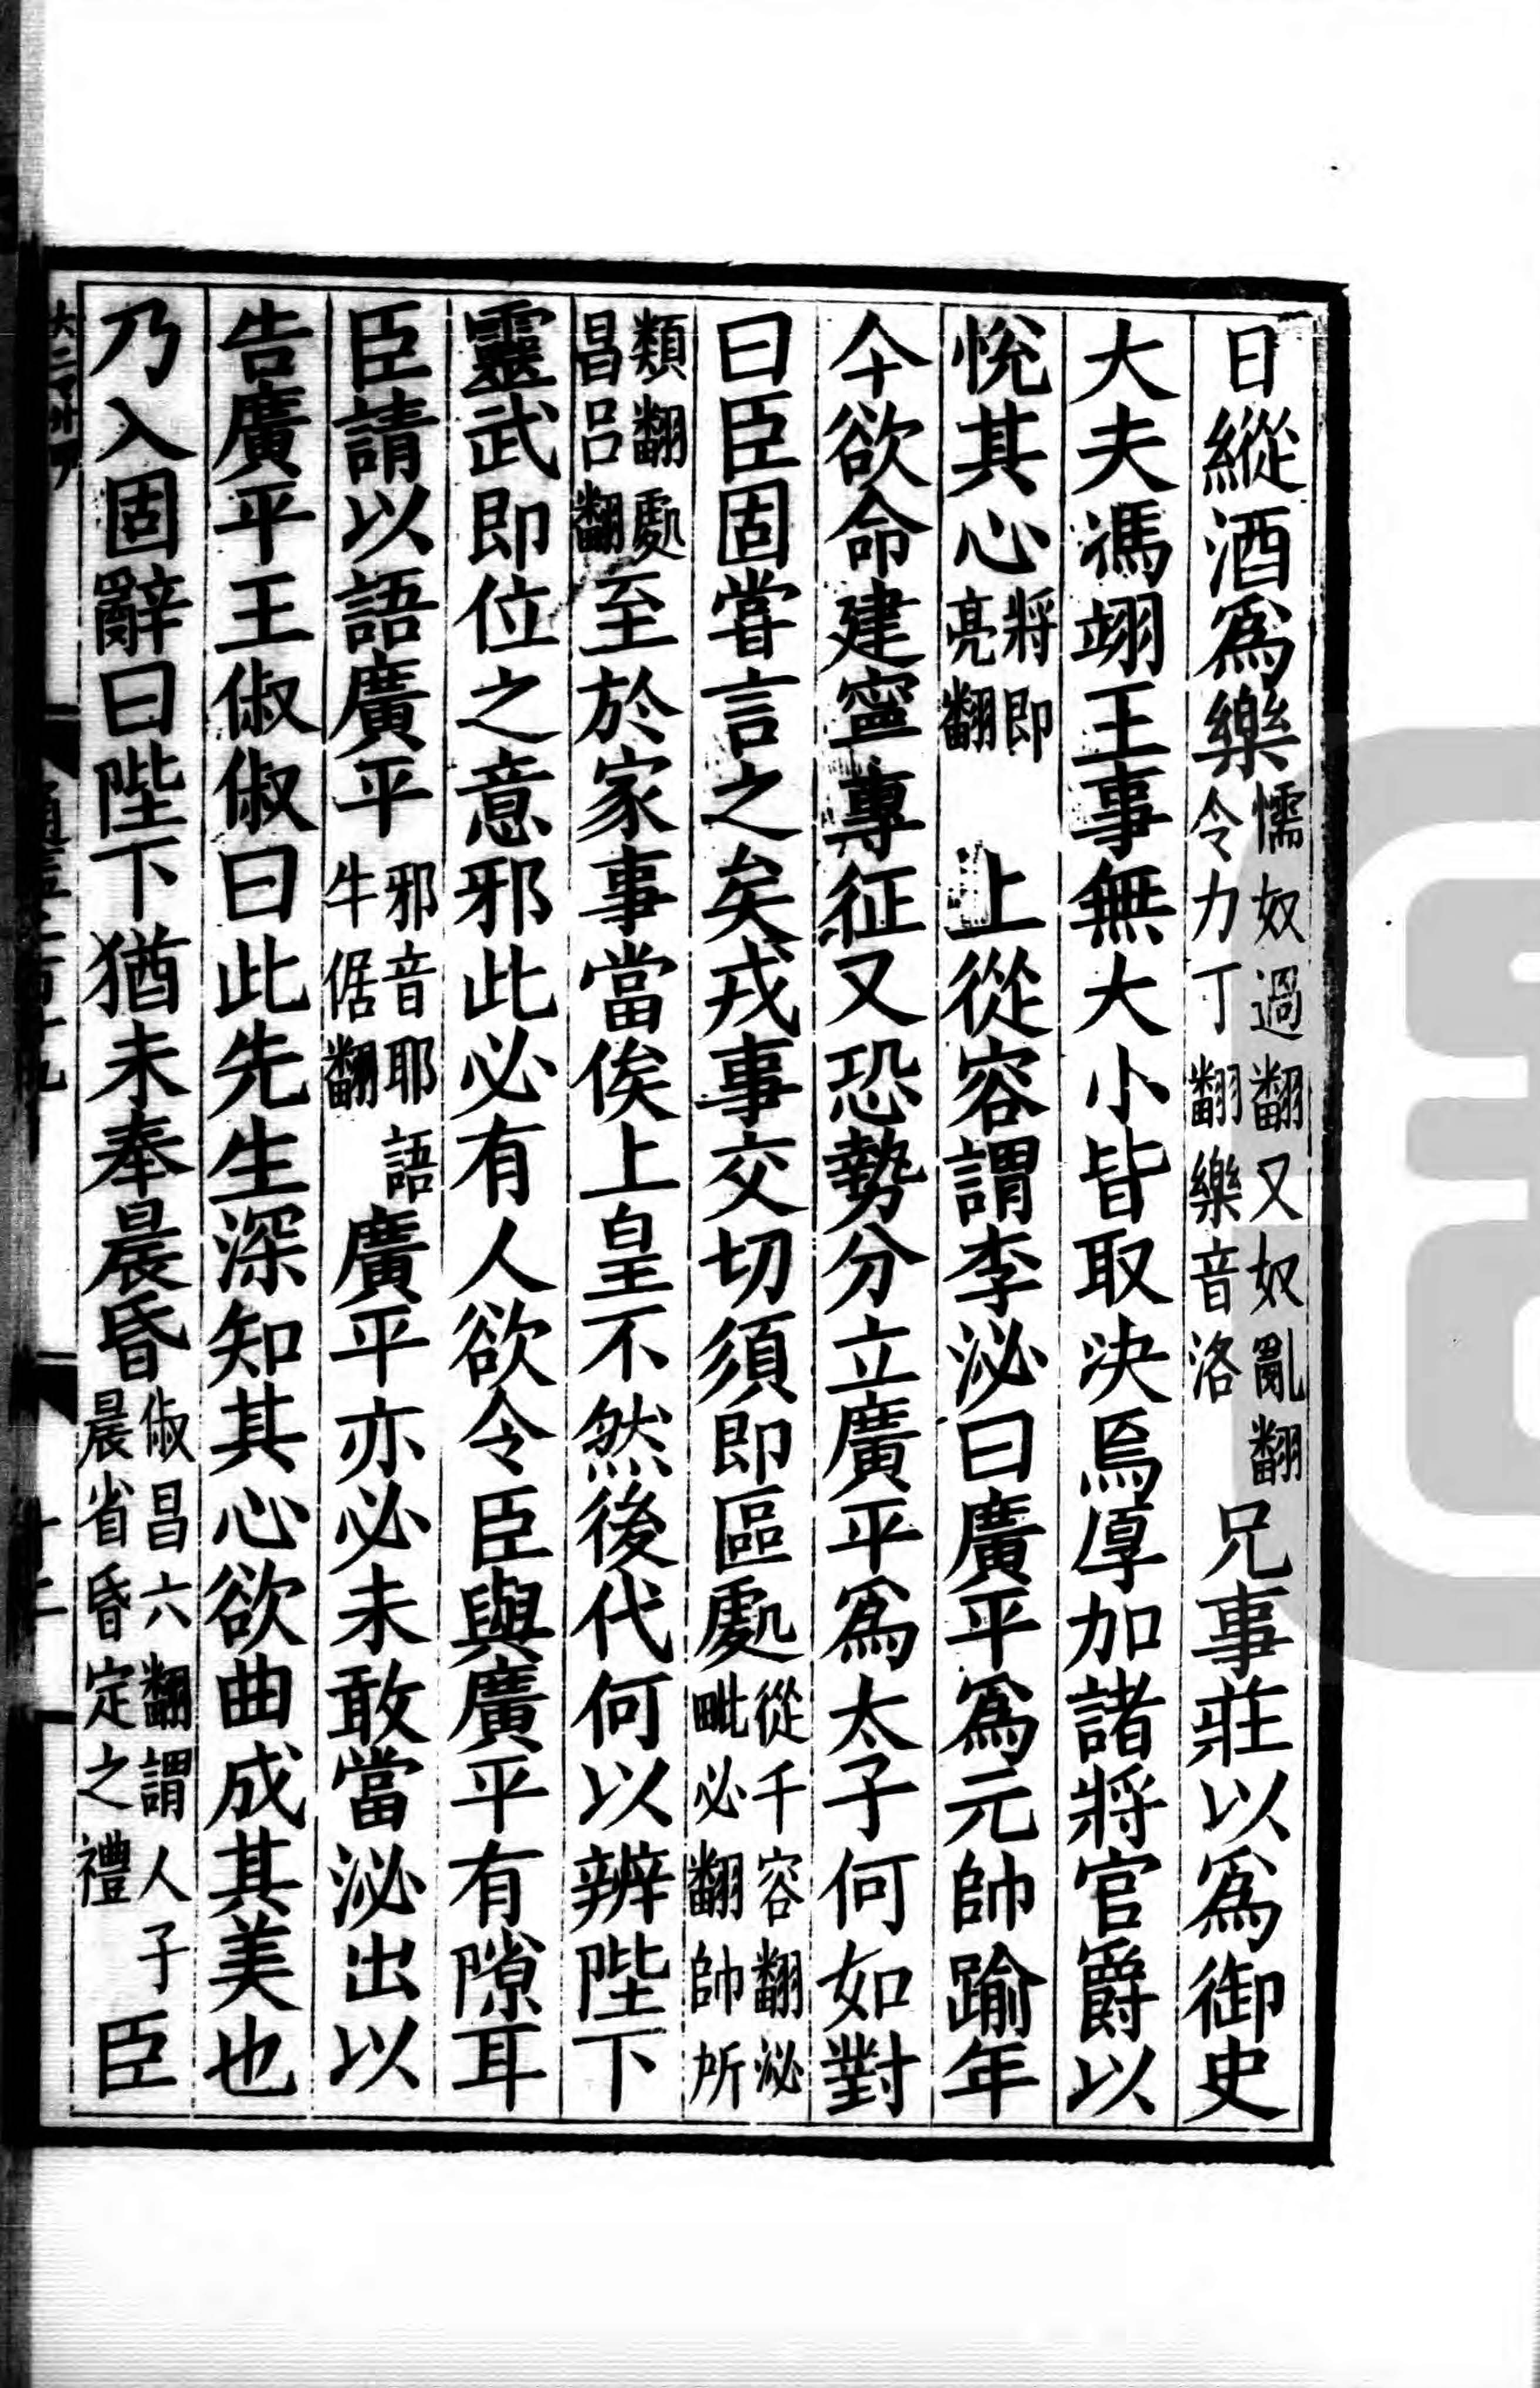 日縱酒爲樂懦奴過翻又奴亂翻令力丁翻樂音洛兄事莊以爲御史
大夫馮翊王事無大小皆取决焉厚加諸將官爵以
悅其心將即亮翻 上從容謂李泌曰廣平爲元帥踰年
今欲命建寧專征又恐勢分立廣平爲太子何如對
曰臣固嘗言之矣戎事交切須即區處從千容翻泌毗必翻帥所
類翻處昌呂翻至於家事當俟上皇不然後代何以辨陛下
靈武即位之意邪此必有人欲令臣與廣平有隙耳
臣請以語廣平邪音耶語牛倨翻廣平亦必未敢當泌出以
告廣平王俶俶曰此先生深知其心欲曲成其美也
乃入固辭曰陛下猶未奉晨昏俶昌六翻謂人子晨省昏定之禮臣